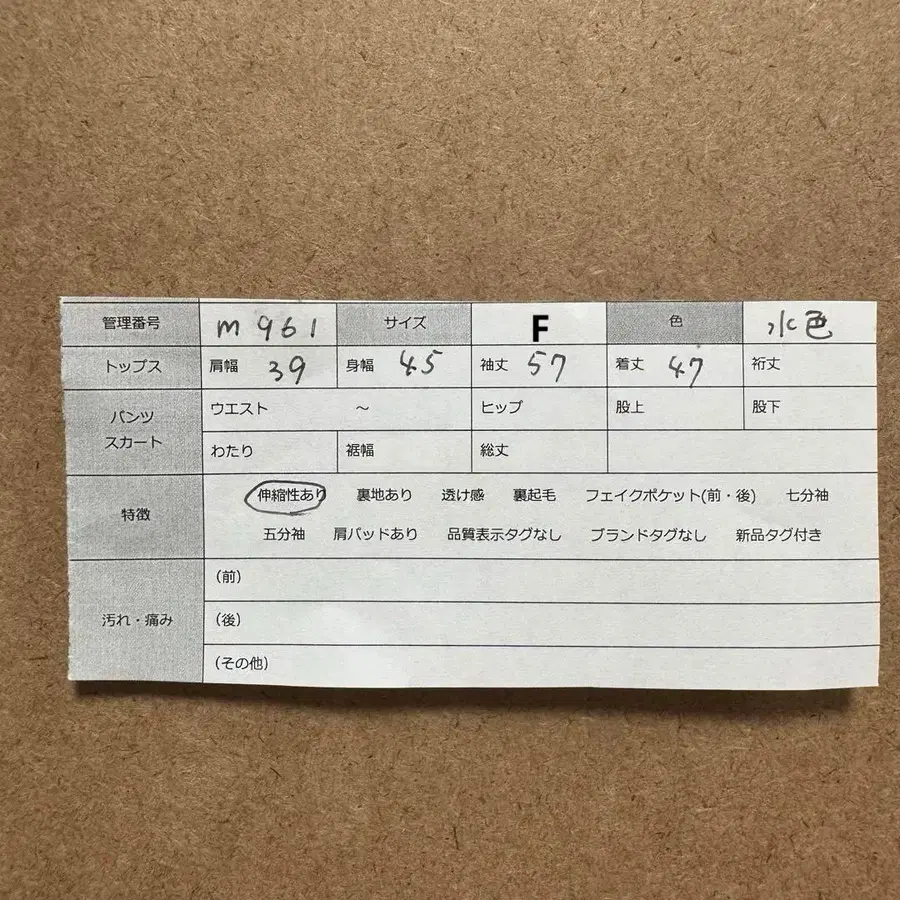 管理番号 m961 サイズ F 色 水色
トップス 肩幅 39 身幅 45 袖丈 57 着丈 47 裄丈
パンツ スカート
ウエスト ～ ヒップ 股上 股下
わたり 裾幅 総丈
特徴
伸縮性あり 裏地あり 透け感 裏起毛 フェイクポケット(前・後) 七分袖
五分袖 肩パッドあり 品質表示タグなし ブランドタグなし 新品タグ付き
汚れ・痛み
（前）
（後）
（その他）